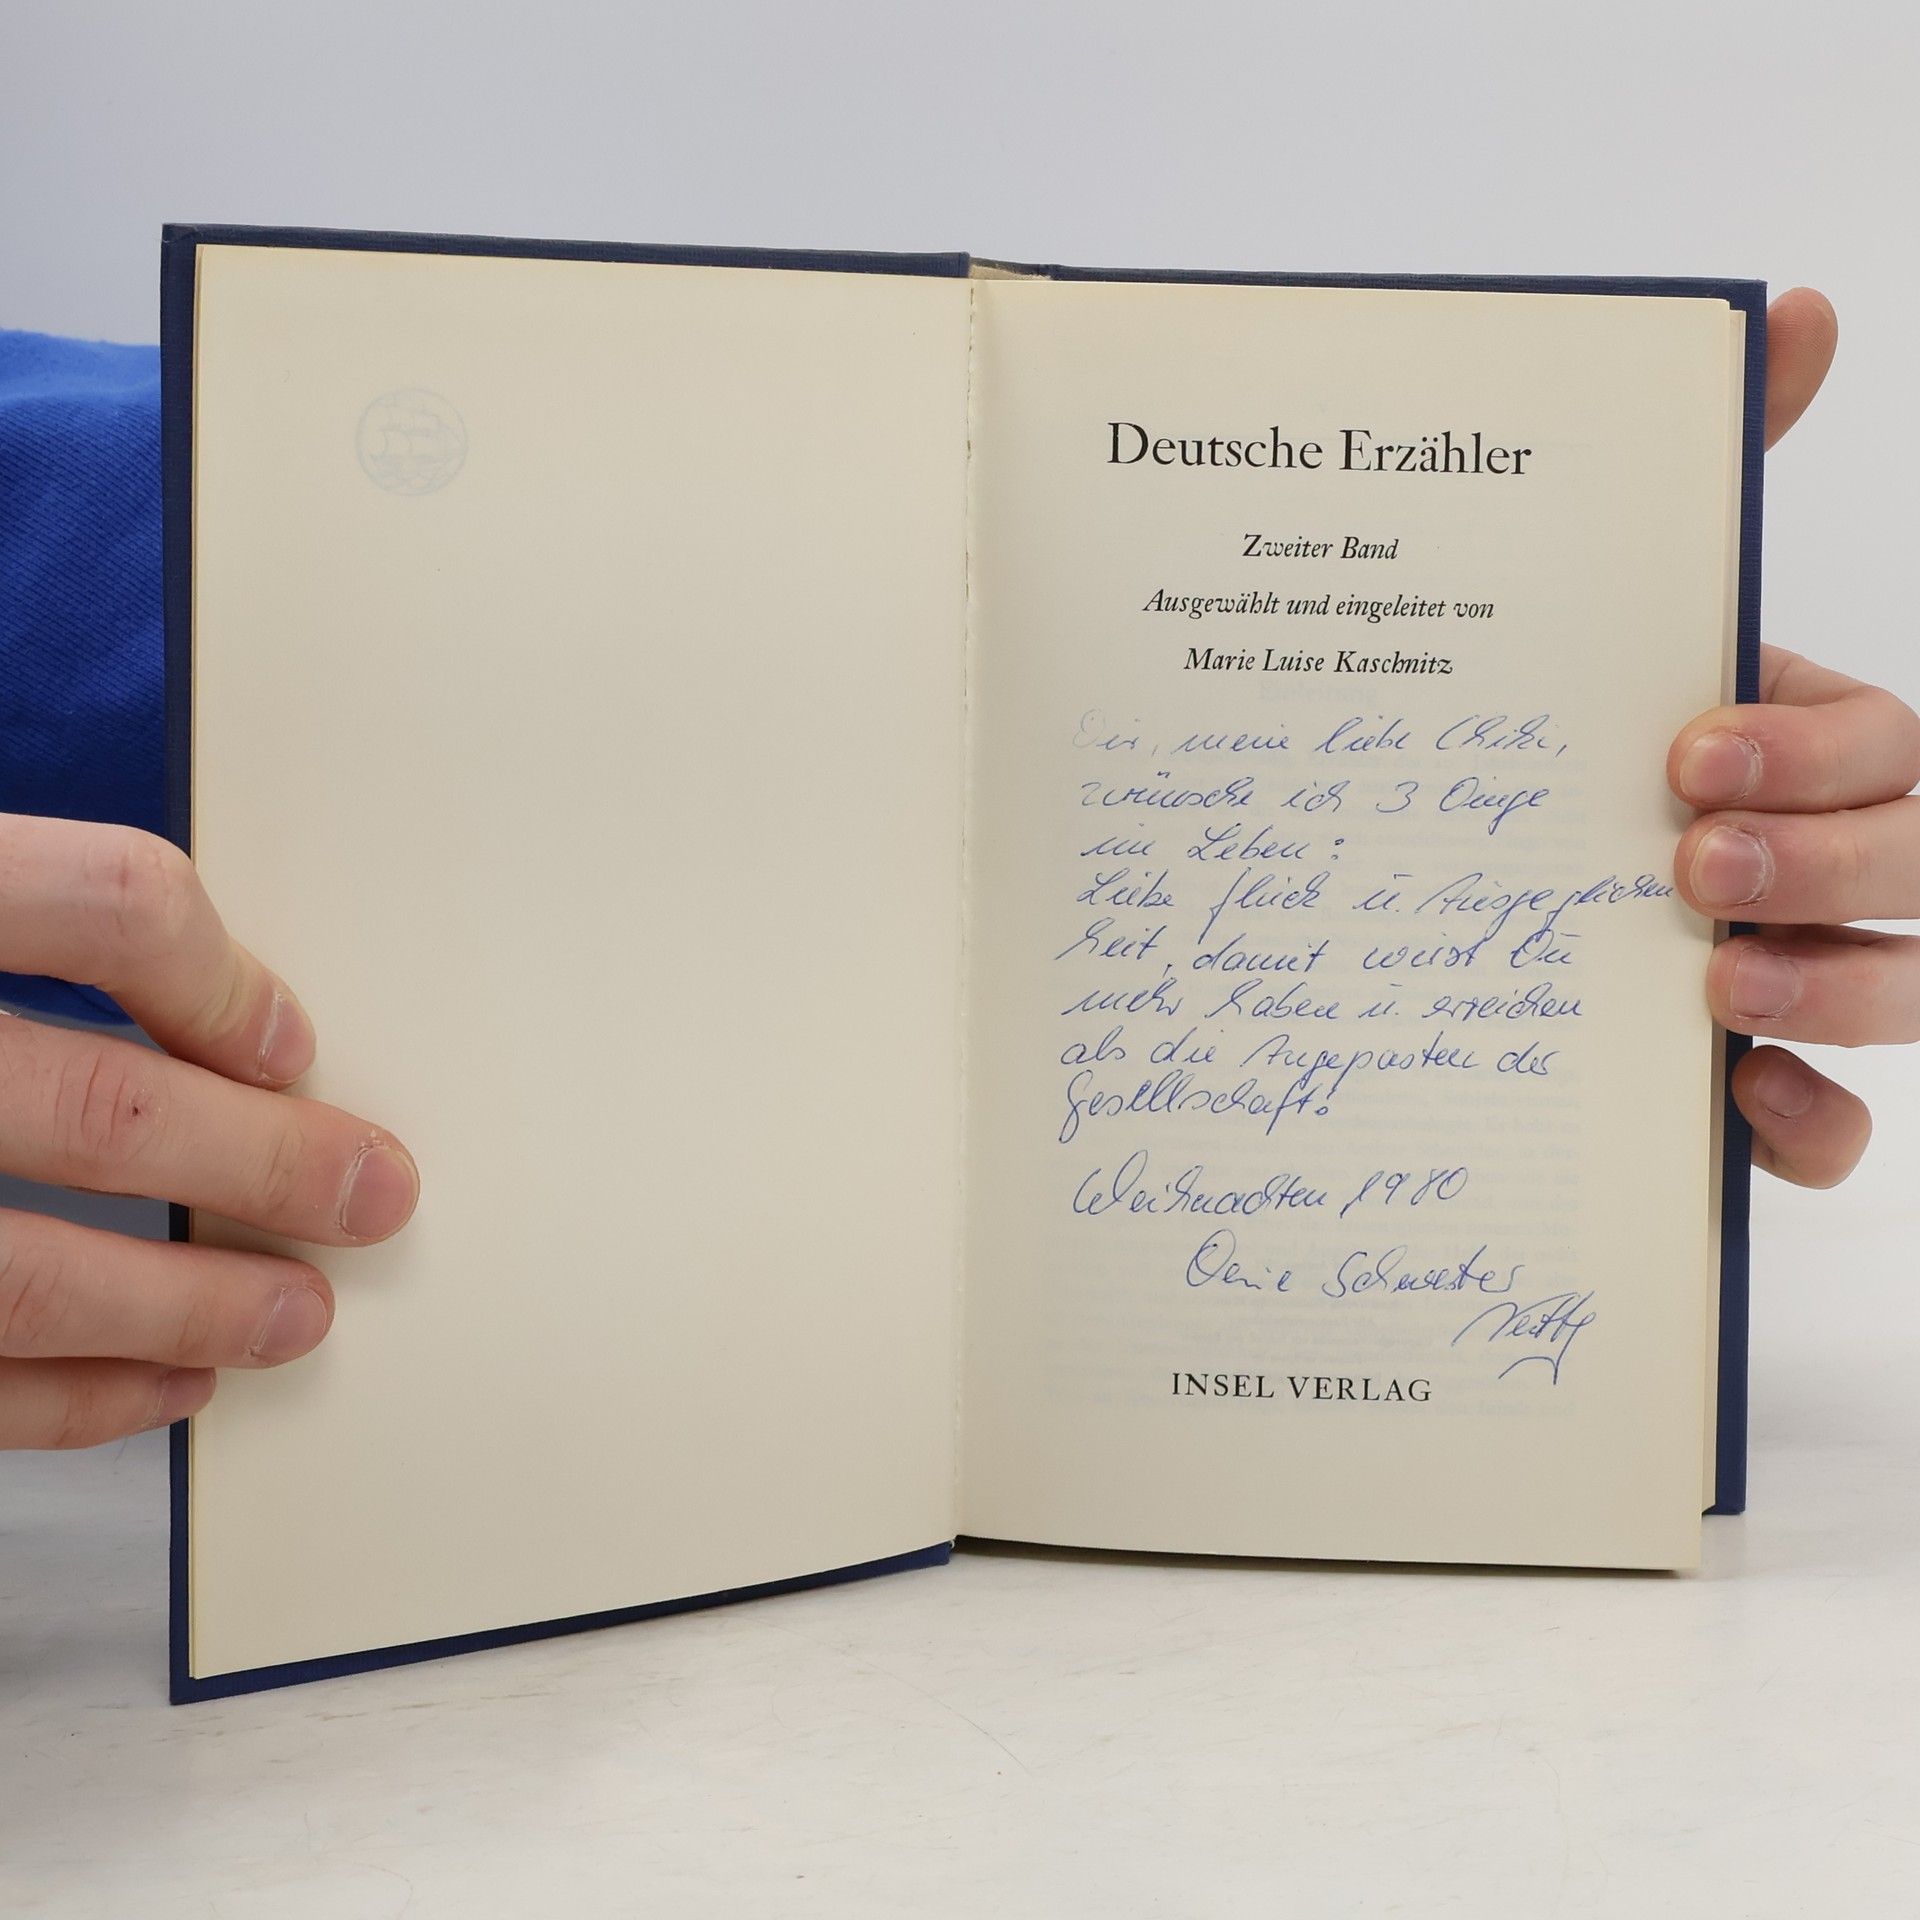 Deutsche Erzähler
Zweiter Band
Ausgewählt und eingeleitet von
Marie Luise Kaschnitz
Dir, meine liebe
wünsche ich 3 Dinge
im Leben:
Liebe Glück u. Ausgeglichen
heit, damit wirst Du
mehr haben u. erreichen
als die Angepasten der
Gesellschaft!
Weihnachten 1980
Deine Schwester
INSEL VERLAG